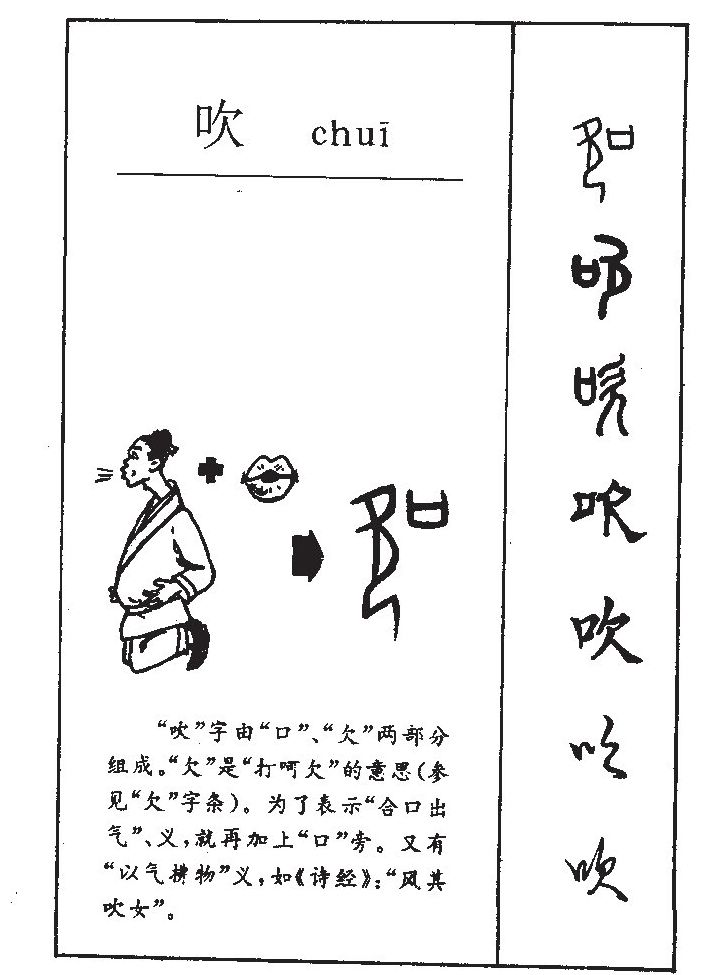 吹 chuī
“吹”字由“口”、“欠”两部分
组成。“欠”是“打呵欠”的意思(参
见“欠”字条)。为了表示“合口出
气”、义,就再加上“口”旁。又有
“以气拂物”义,如《诗经》:“风其
吹女”。
吹
吹
吹
吹
吹
吹
吹